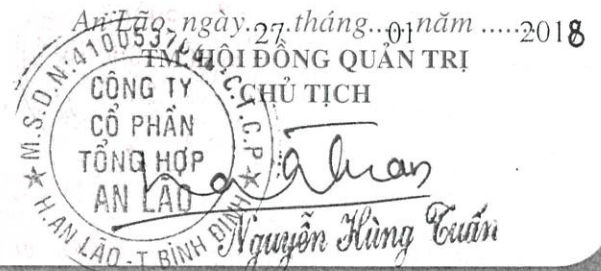 An Lão, ngày..27..tháng..01.năm .....2018
TM. HỘI ĐỒNG QUẢN TRỊ
CHỦ TỊCH
CÔNG TY
CỔ PHẦN
TỔNG HỢP
AN LÃO
H. AN LÃO - T. BÌNH ĐỊNH
Nguyễn Hùng Tuấn